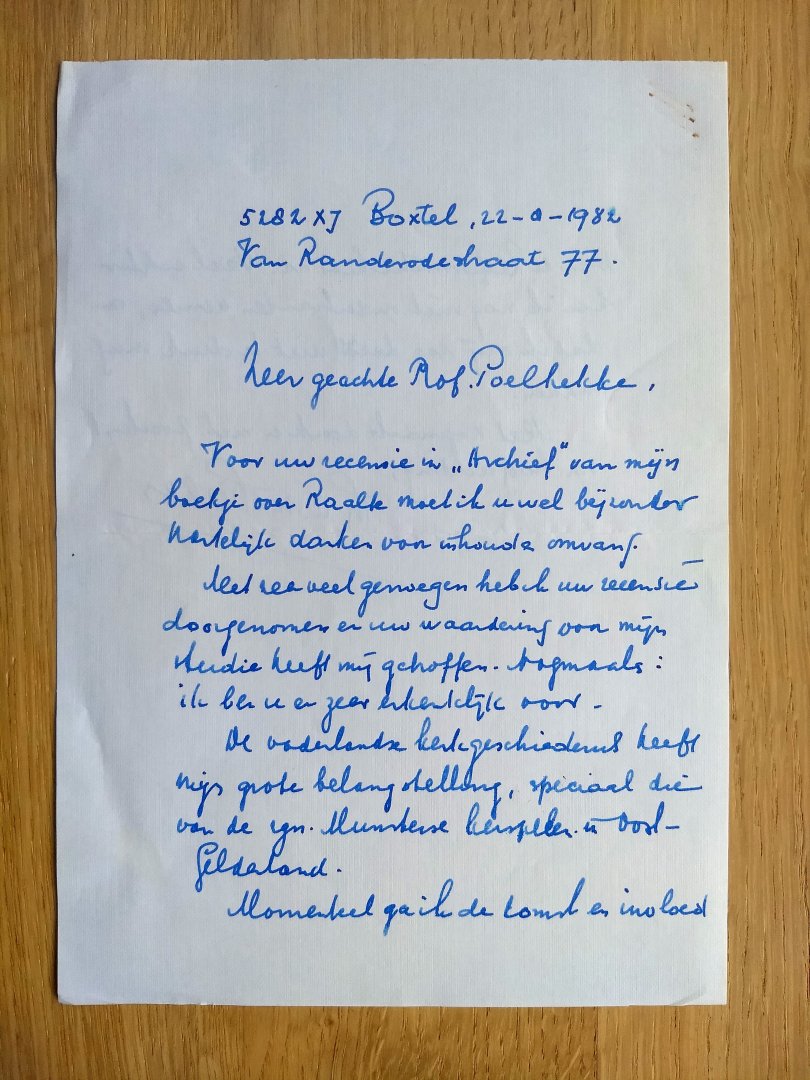 5282 XJ Boxtel, 22-9-1982
Van Randerodestraat 77.
Zeer geachte Prof. Poelhekke,
Voor uw recensie in „Archief" van mijn
boekje over Raalte moet ik u wel bijzonder
hartelijk danken voor inhoud en omvang.
Met zeer veel genoegen heb ik uw recensie
doorgenomen en uw waardering voor mijn
studie heeft mij getroffen. Nogmaals:
ik ben u er zeer erkentelijk voor.
De vaderlandse kerkgeschiedenis heeft
mijn grote belangstelling, speciaal die
van de zgn. Munsterse kerspelen in Oost-
Gelderland.
Momenteel ga ik de komst en invloed